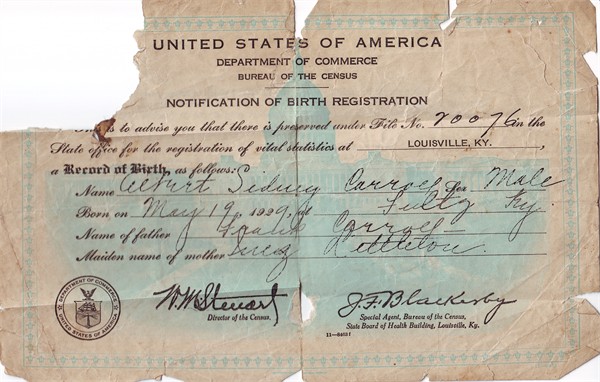 UNITED STATES OF AMERICA
DEPARTMENT OF COMMERCE
BUREAU OF THE CENSUS
NOTIFICATION OF BIRTH REGISTRATION
is to advise you that there is preserved under File No. 20076 in the
State office for the registration of vital statistics at LOUISVILLE, KY.,
a Record of Birth, as follows:
Name Albert Sidney Carroll Sex Male
Born on May 19, 1929, at Fultz Ky.
Name of father Frank Carroll
Maiden name of mother Inez Littleton.
DEPARTMENT OF COMMERCE
UNITED STATES OF AMERICA
W M Steuart
Director of the Census.
J. F. Blackerby
Special Agent, Bureau of the Census,
State Board of Health Building, Louisville, Ky.